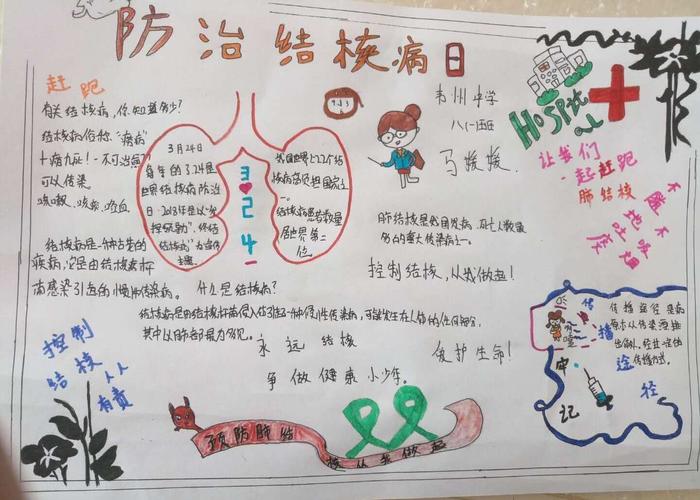 防治结核病日
赶跑
有关结核病,你知道多少?
结核病俗称"痨病"
十痨九死!-不可治愈?
可以传染
咳嗽、咳痰、咳血
结核病是一种古老的
疾病,它是由结核杆
菌感染引起的慢性传染病。
3月24日
每年的3.24是
世界结核病防治
日
结核病"为宣传
主题
3
2
4
我国是世界上22个结
核病高负担国家之
一。
结核病患者数量
居世界第二
位
韦州中学
八(一)班
马媛媛
HOSPital
让我们
一起赶跑
肺结核
不随地吐痰
不吸烟
肺结核是我国发病、死亡人数最
多的重大传染病之一。
控制结核,从我做起!
什么是结核病?
结核病是由结核杆菌侵入体引起的一种慢性传染病,可能发生在人体的任何部位,
其中以肺部最为多见。
永远结核
爱护生命!
争做健康小少年。
控制
结核
人人
有责
预防肺结
核从我做起
传播途径
传播途径是病
原体从传染源排
出后,
传播方式。